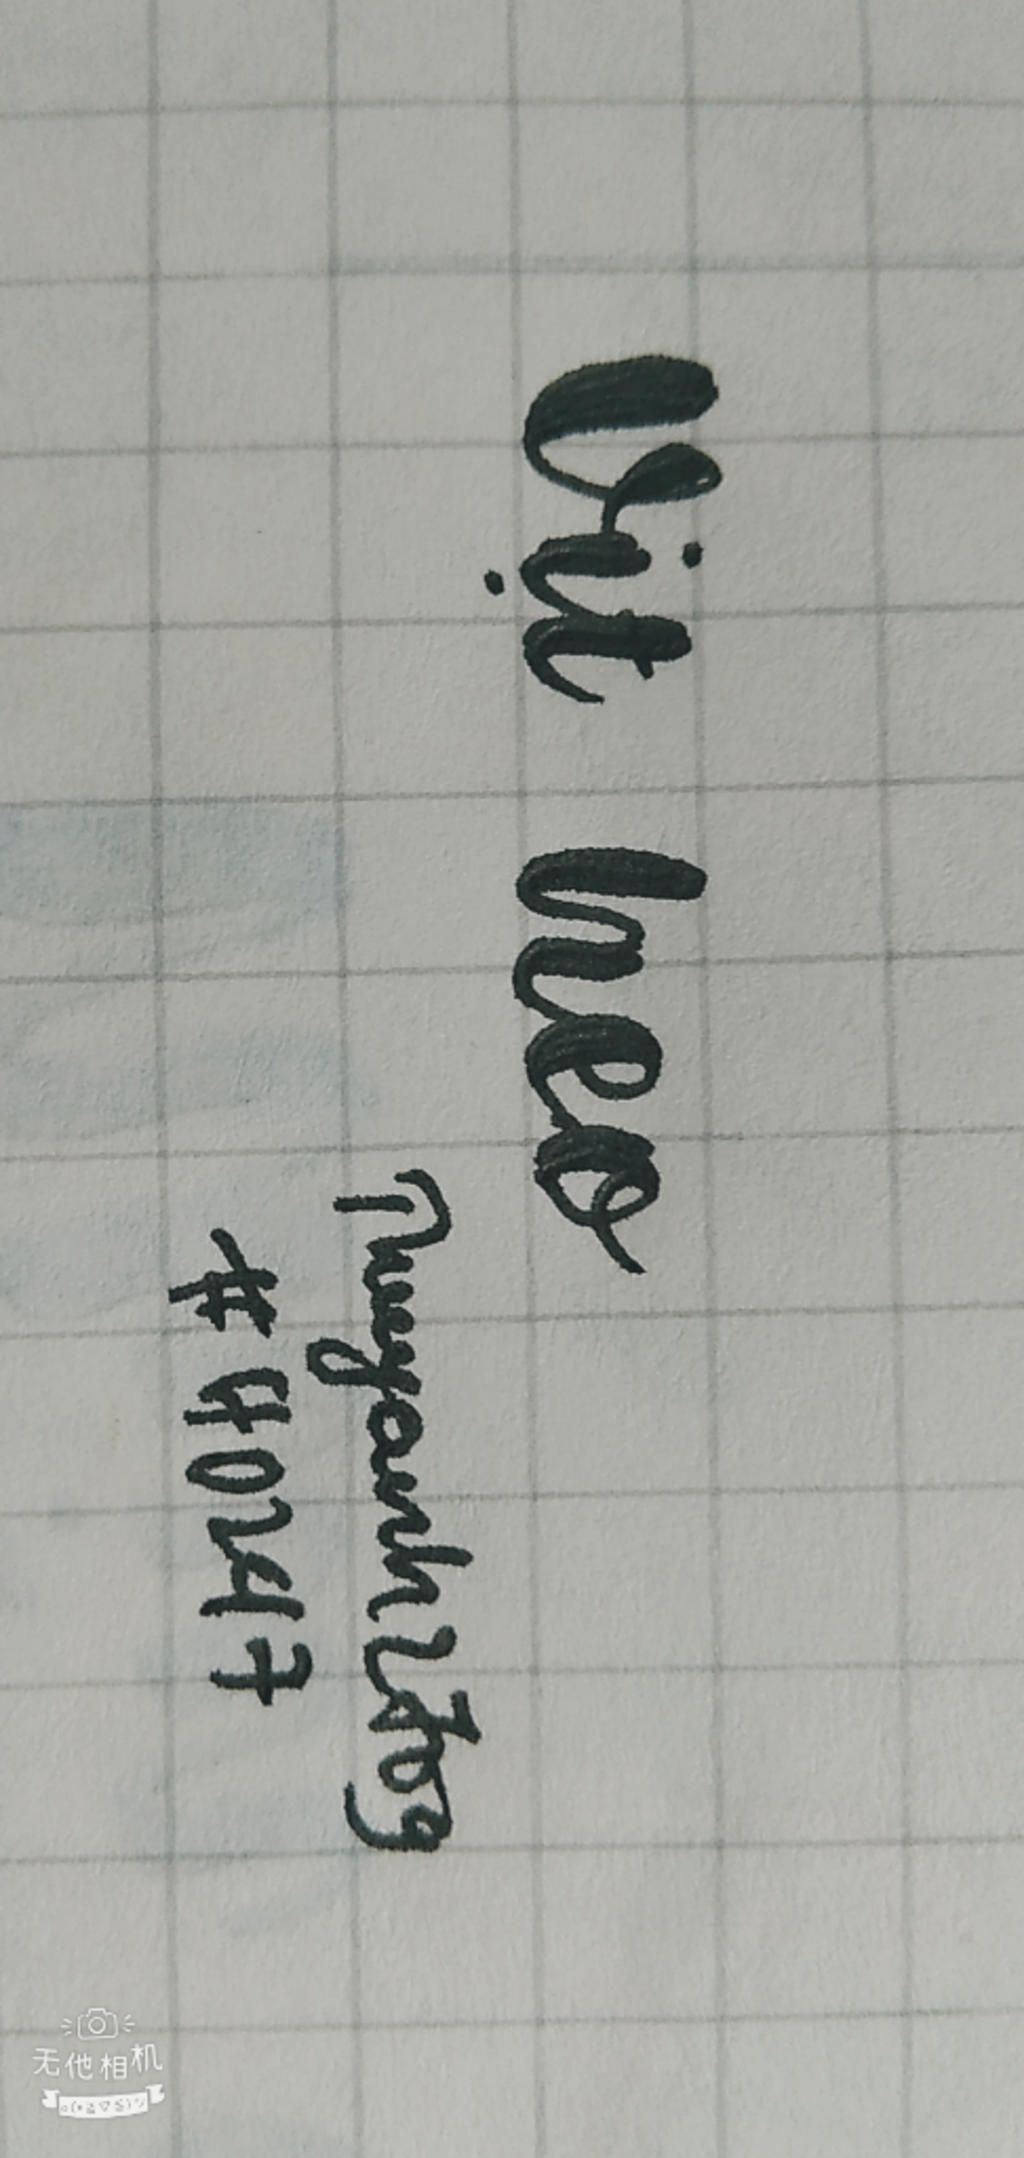 Vịt heo
Thuyanh2309
#40247
无他相机